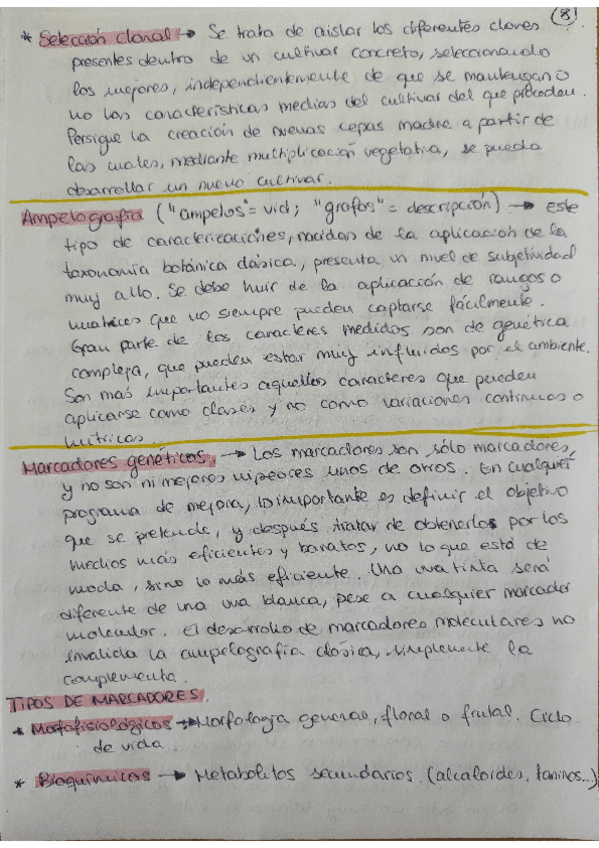 8
* Selección clonal → Se trata de aislar los diferentes clones
presentes dentro de un cultivar concreto, seleccionando
los mejores, independientemente de que se mantengan o
no las características medias del cultivar del que proceden.
Persigue la creación de nuevas cepas madre a partir de
las cuales, mediante multiplicación vegetativa, se pueda
desarrollar un nuevo cultivar.
Ampelografía ("ampelos"= vid; "grafos"= descripción) → este
tipo de caracterizaciones, nacidas de la aplicación de la
taxonomía botánica clásica, presenta un nivel de subjetividad
muy alto. Se debe huir de la aplicación de rangos o
matices que no siempre pueden captarse fácilmente.
Gran parte de los caracteres medidos son de genética
compleja, que pueden estar muy influidos por el ambiente.
Son más importantes aquellos caracteres que pueden
aplicarse como clases y no como variaciones continuas o
métricas.
Marcadores genéticos. → Los marcadores son sólo marcadores,
y no son ni mejores ni peores unos de otros. En cualquier
programa de mejora, lo importante es definir el objetivo
que se pretende, y después tratar de obtenerlos por los
medios más eficientes y baratos, no lo que está de
moda, sino lo más eficiente. Una uva tinta será
diferente de una uva blanca, pese a cualquier marcador
molecular. El desarrollo de marcadores moleculares no
invalida la ampelografía clásica, simplemente la
complementa.
TIPOS DE MARCADORES.
* Morfofisiológicos → Morfología general, floral o frutal. Ciclo
de vida.
* Bioquímicos → Metabolitos secundarios (alcaloides, taninos...)